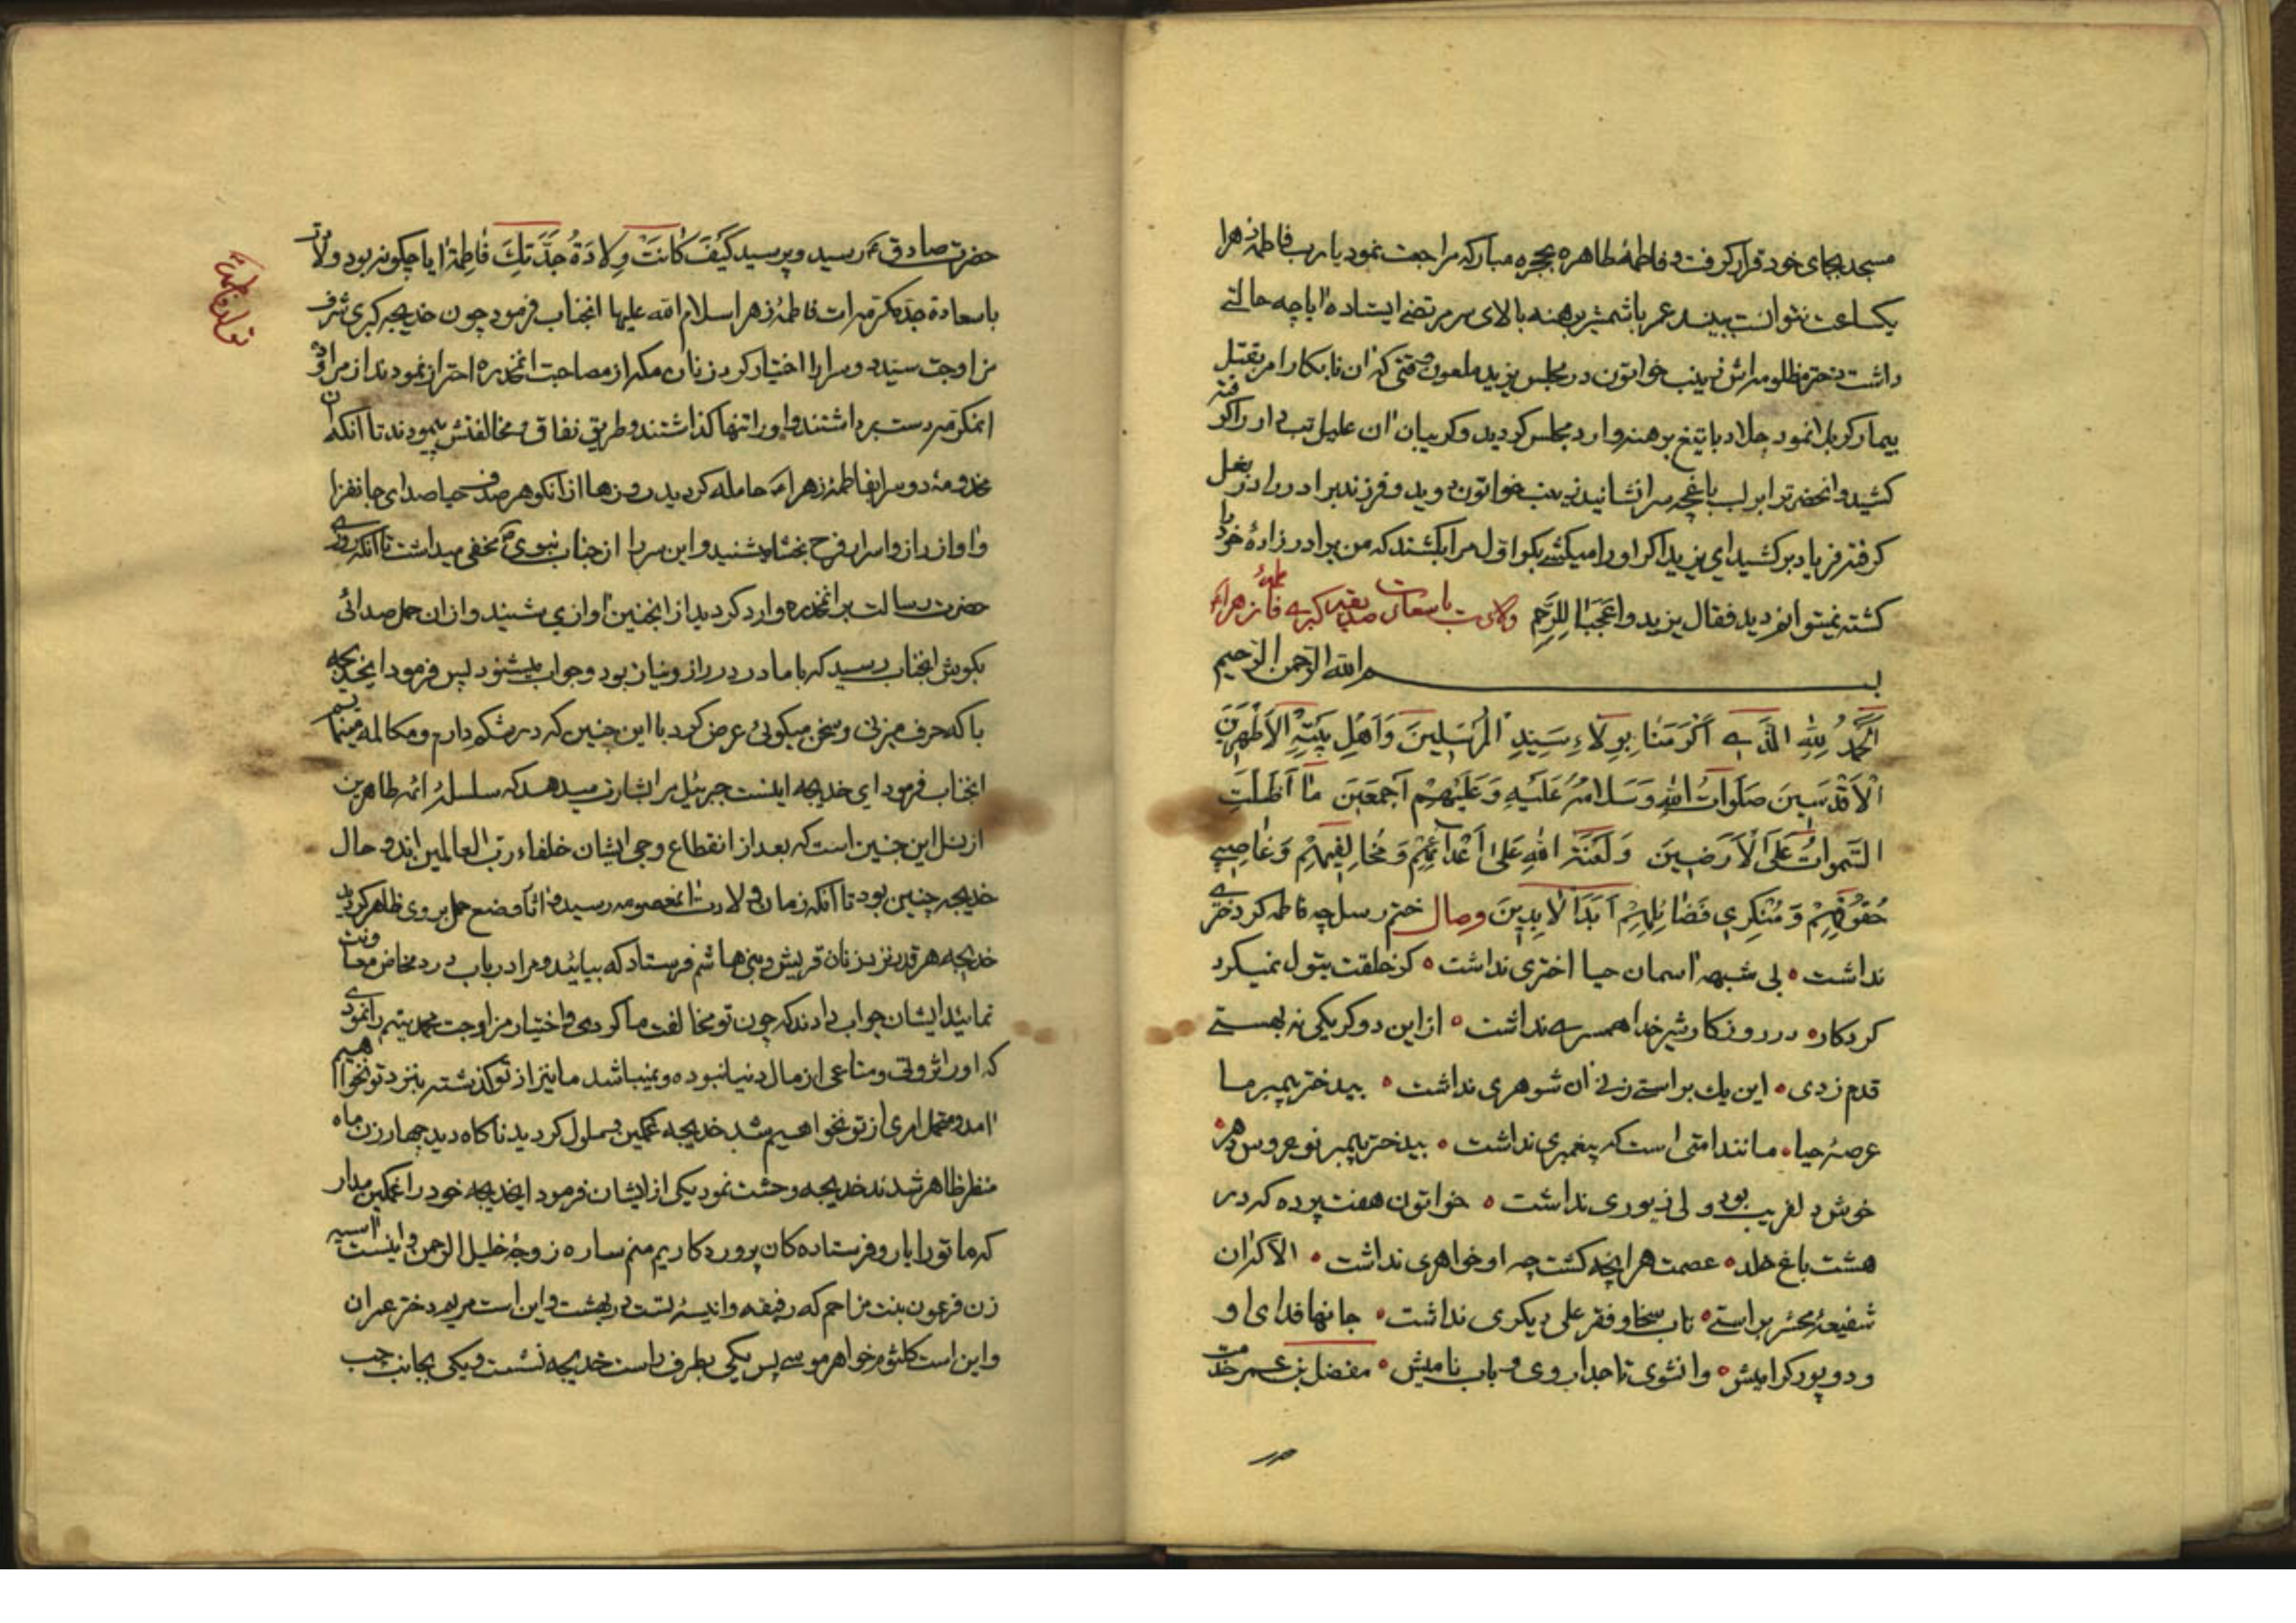 مسجد بجای خود قرار کرفت و فاطمهٔ طاهره بحجره مبارکه مراجعت نمود یا رب فاطمهٔ زهرا
یکساعت نتوانست ببیند عمر با شمشیر برهنه بالای سر مرتضی ایستاده ایا چه حالتی
داشت دختر مظلومه اش زینب خواتون در مجلس یزید ملعون وقتی که ان نابکار امر بقتل
بیمار کربلا نمود جلاد با تیغ برهنه وارد مجلس کردید و کریبان ان علیل تب دار را کرفته
کشید و انحضرترا بر لب باغچه سرا نشانید زینب خواتون دوید و فرزند برادر را در بغل
کرفته فریاد بر کشید ای یزید اکر او را میکشی بکو اول مرا بکشند که من برادر زادهٔ خود را
کشته نمیتوانم دید فقال یزید واعَجَبَا لِلرَّحِمِ ولادت باسعادت صدیقه کبری فاطمهٔ زهرا ع
بسم الله الرحمن الرحیم
اَلْحَمْدُ لِلّٰهِ الَّذی اَکْرَمَنٰا بِوِلاءِ سَیِّدِ الْمُرْسَلینَ وَاَهْلِ بَیْتِهِ الْاَطْهَرینَ
الْاَقْدَسینَ صَلَوٰاتُ اللهِ وَسَلامُهُ عَلَیْهِ وَعَلَیْهِمْ اَجْمَعینَ مٰا اَظَلَّتِ
السَّمٰوٰاتُ عَلَی الْاَرَضینَ وَلَعْنَةُ اللهِ عَلیٰ اَعْدٰائِهِمْ وَمُخٰالِفیهِمْ وَغٰاصِبی
حُقُوقِهِمْ وَمُنْکِری فَضٰائِلِهِمْ اَبَدَ الْاٰبِدینَ وصال ختم رسل چه فاطمه کر دختری
نداشت • بی شبهه اسمان حیا اختری نداشت • کر خلقت بتول نمیکرد
کردکار • در روزکار شیر خدا همسری نداشت • از این دو کر یکی نه بهستی
قدم زدی • این یك براستی زنی ان شوهری نداشت • بیدختر پیمبر ما
عرصهٔ حیا • مانند امتی است که پیغمبری نداشت • بیدختر پیمبر نو عروس دهر •
خوش دلفریب بود ولی زیوری نداشت • خواتون هفت پرده که در
هشت باغ خلد • عصمت هرانچه کشت چه او خواهری نداشت • الا کزان
شفیعهٔ محشر براستی • تاب سخا و فقر علی دیکری نداشت • جانها فدای او
و دو پور کرامیش • وانشوی تاجدار وی و باب نامیش • مفضل بن عمر خدمت
حضرت صادق ع رسید و پرسید کَیْفَ کٰانَتْ وِلٰادَةُ جَدَّتِكَ فٰاطِمَةَ ایا چکونه بود ولادت
باسعادة جدهٔ مکرمه ات فاطمهٔ زهرا سلام الله علیها انجناب فرمود چون خدیجه کبری شرف
مزاوجت سید دو سرا را اختیار کرد زنان مکه از مصاحبت انمخدره احتراز نمودند از مراوده
انمکرمه دست برداشتند و او را تنها کذاشتند و طریق نفاق و مخالفتش پیمودند تا انکه ان
مخدومهٔ دو سرا بفاطمهٔ زهرا ع حامله کردید روزها از انکوهر صدف حیا صدای جانفزا
واواز راز و اسرار فرح بخشا میشنید و این سر را از جناب نبوی ص مخفی میداشت تا انکه روزی
حضرت رسالت بر انمخدره وارد کردید از انجنین اوازی شنید و از ان حمل صدائی
بکوش انجناب رسید که با مادر در راز و نیاز بود و جواب میشنود پس فرمود ایخدیجه
با که حرف میزنی و سخن میکوئی عرض کرد با این جنین که در شکم دارم و مکالمه مینمایم
انجناب فرمود ای خدیجه اینست جبرئیل مرا بشارت میدهد که سلسلهٔ ائمه طاهرین
از نسل این جنین است که بعد از انقطاع وحی ایشان خلفاء رب العالمین اند و حال
خدیجه چنین بود تا انکه زمان ولادت انمعصومه رسید و اثار وضع حمل بر وی ظاهر کردید
خدیجه هر قدر نزد زنان قریش و بنی هاشم فرستاد که بیائید و مرا در باب درد مخاض معاونت
نمائید ایشان جواب دادند که چون تو مخالفت ما کردی و اختیار مزاوجت محمد یتیم را نمودی
که او را ثروتی و متاعی از مال دنیا نبوده و نمیباشد ما نیز از تو کذشته بنزد تو نخواهیم
امد و متحمل امری از تو نخواهیم شد خدیجه غمکین و ملول کردید ناکاه دید چهار زن ماه
منظر ظاهر شدند خدیجه وحشت نمود یکی از ایشان فرمود ایخدیجه خود را غمکین مدار
که ما تو را یار و فرستاده کان پروردکاریم منم ساره زوجهٔ خلیل الرحمن و اینست اسیه
زن فرعون بنت مزاحم که رفیقه و انیسهٔ تست در بهشت و این است مریم دختر عمران
و این است کلثوم خواهر موسی پس یکی بطرف راست خدیجه نشست و یکی بجانب چپ